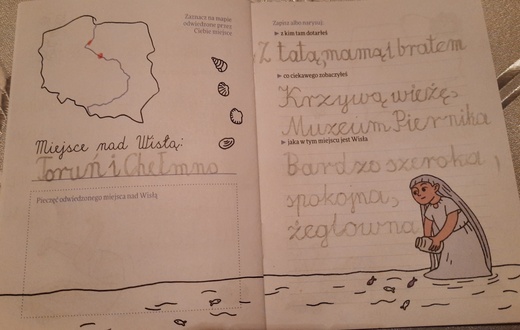 Zaznacz na mapie
odwiedzone przez
Ciebie miejsca
Miejsce nad Wisłą:
Toruń i Chełmno
Pieczęć odwiedzonego miejsca nad Wisłą
Zapisz albo narysuj
▶ z kim tam dotarłeś
Z tatą, mamą i bratem
▶ co ciekawego zobaczyłeś
Krzywą wieżę,
Muzeum Piernika
▶ jaka w tym miejscu jest Wisła
Bardzo szeroka,
spokojna,
żeglowna